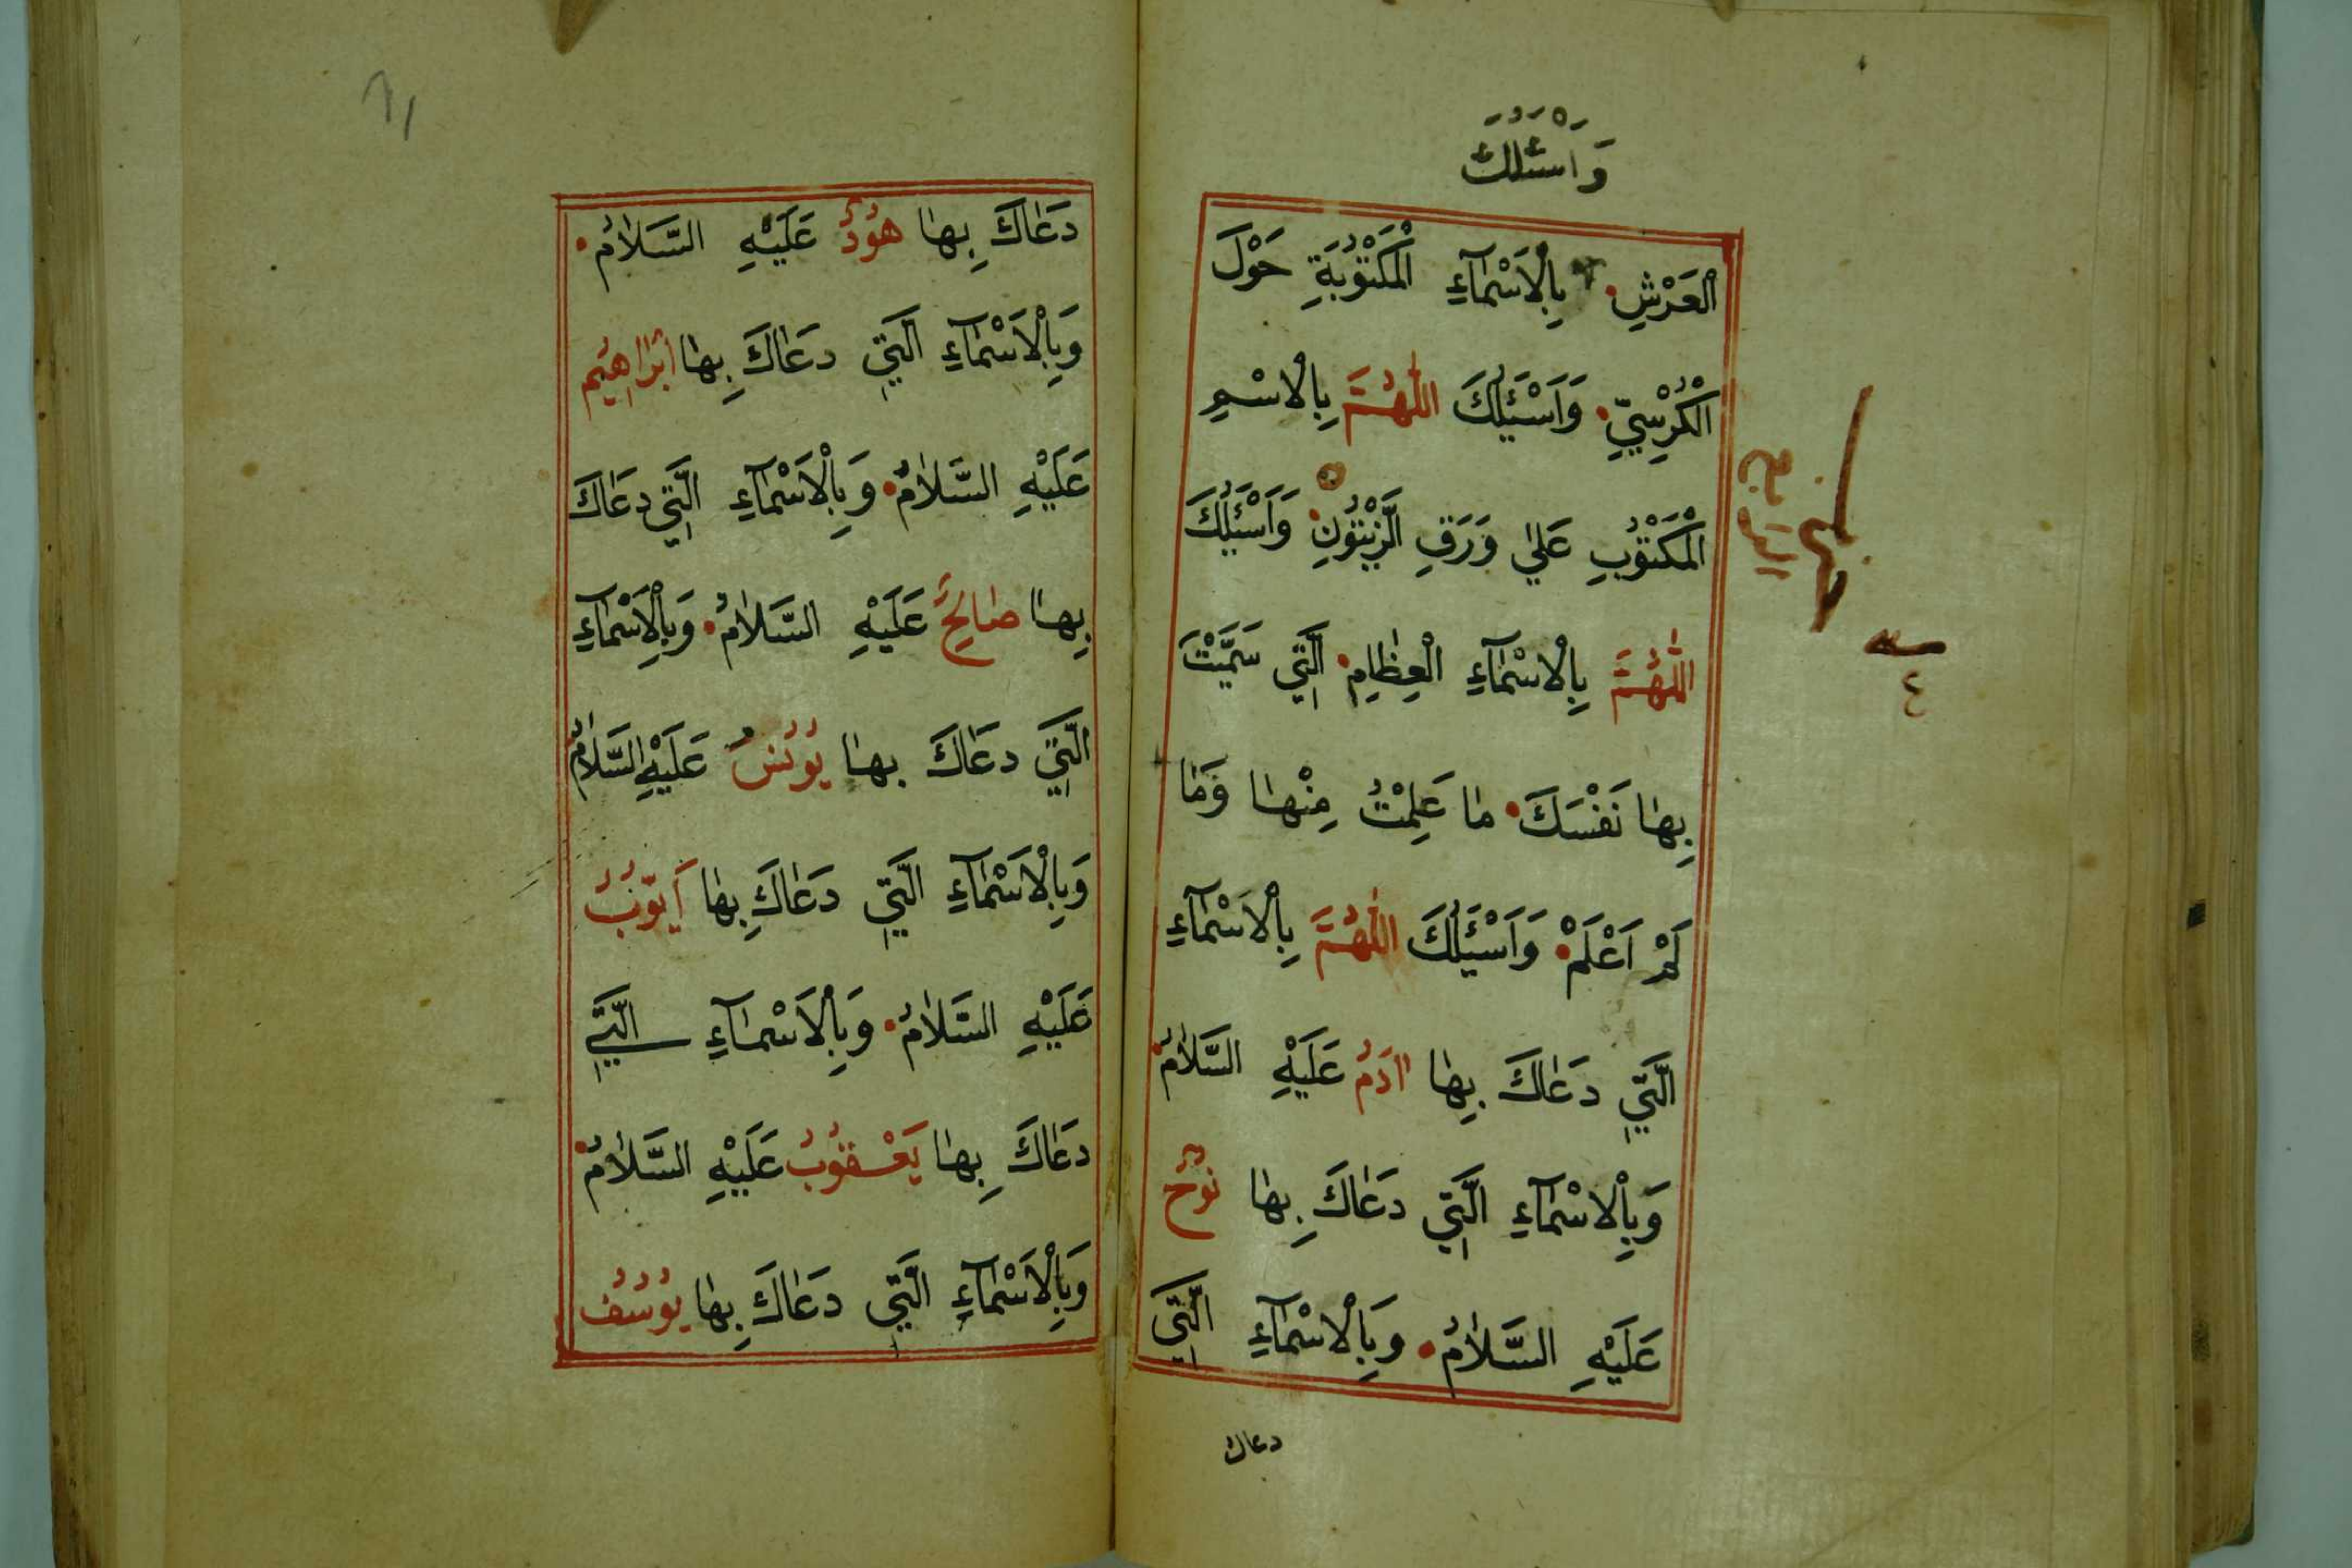 وَاَسْئَلُكَ
الْعَرْشِ بِالْاَسْمَآءِ الْمَكْتُوْبَةِ حَوْلَ
الْكُرْسِيِّ وَاَسْئَلُكَ اللّٰهُمَّ بِالْاِسْمِ
الْمَكْتُوْبِ عَلٰي وَرَقِ الزَّيْتُوْنِ وَاَسْئَلُكَ
اللّٰهُمَّ بِالْاَسْمَآءِ الْعِظَامِ الَّتِي سَمَّيْتَ
بِهَا نَفْسَكَ مَا عَلِمْتُ مِنْهَا وَمَا
لَمْ اَعْلَمْ وَاَسْئَلُكَ اللّٰهُمَّ بِالْاَسْمَآءِ
الَّتِي دَعَاكَ بِهَا اٰدَمُ عَلَيْهِ السَّلَامُ
وَبِالْاَسْمَآءِ الَّتِي دَعَاكَ بِهَا نُوْحٌ
عَلَيْهِ السَّلَامُ وَبِالْاَسْمَآءِ الَّتِي
دعاك
الرابع
٤
٦١
دَعَاكَ بِهَا هُوْدٌ عَلَيْهِ السَّلَامُ
وَبِالْاَسْمَآءِ الَّتِي دَعَاكَ بِهَا اِبْرَاهِيْمُ
عَلَيْهِ السَّلَامُ وَبِالْاَسْمَآءِ الَّتِي دَعَاكَ
بِهَا صَالِحٌ عَلَيْهِ السَّلَامُ وَبِالْاَسْمَآءِ
الَّتِي دَعَاكَ بِهَا يُوْنُسُ عَلَيْهِ السَّلَامُ
وَبِالْاَسْمَآءِ الَّتِي دَعَاكَ بِهَا اَيُّوْبُ
عَلَيْهِ السَّلَامُ وَبِالْاَسْمَآءِ الَّتِي
دَعَاكَ بِهَا يَعْقُوْبُ عَلَيْهِ السَّلَامُ
وَبِالْاَسْمَآءِ الَّتِي دَعَاكَ بِهَا يُوْسُفُ